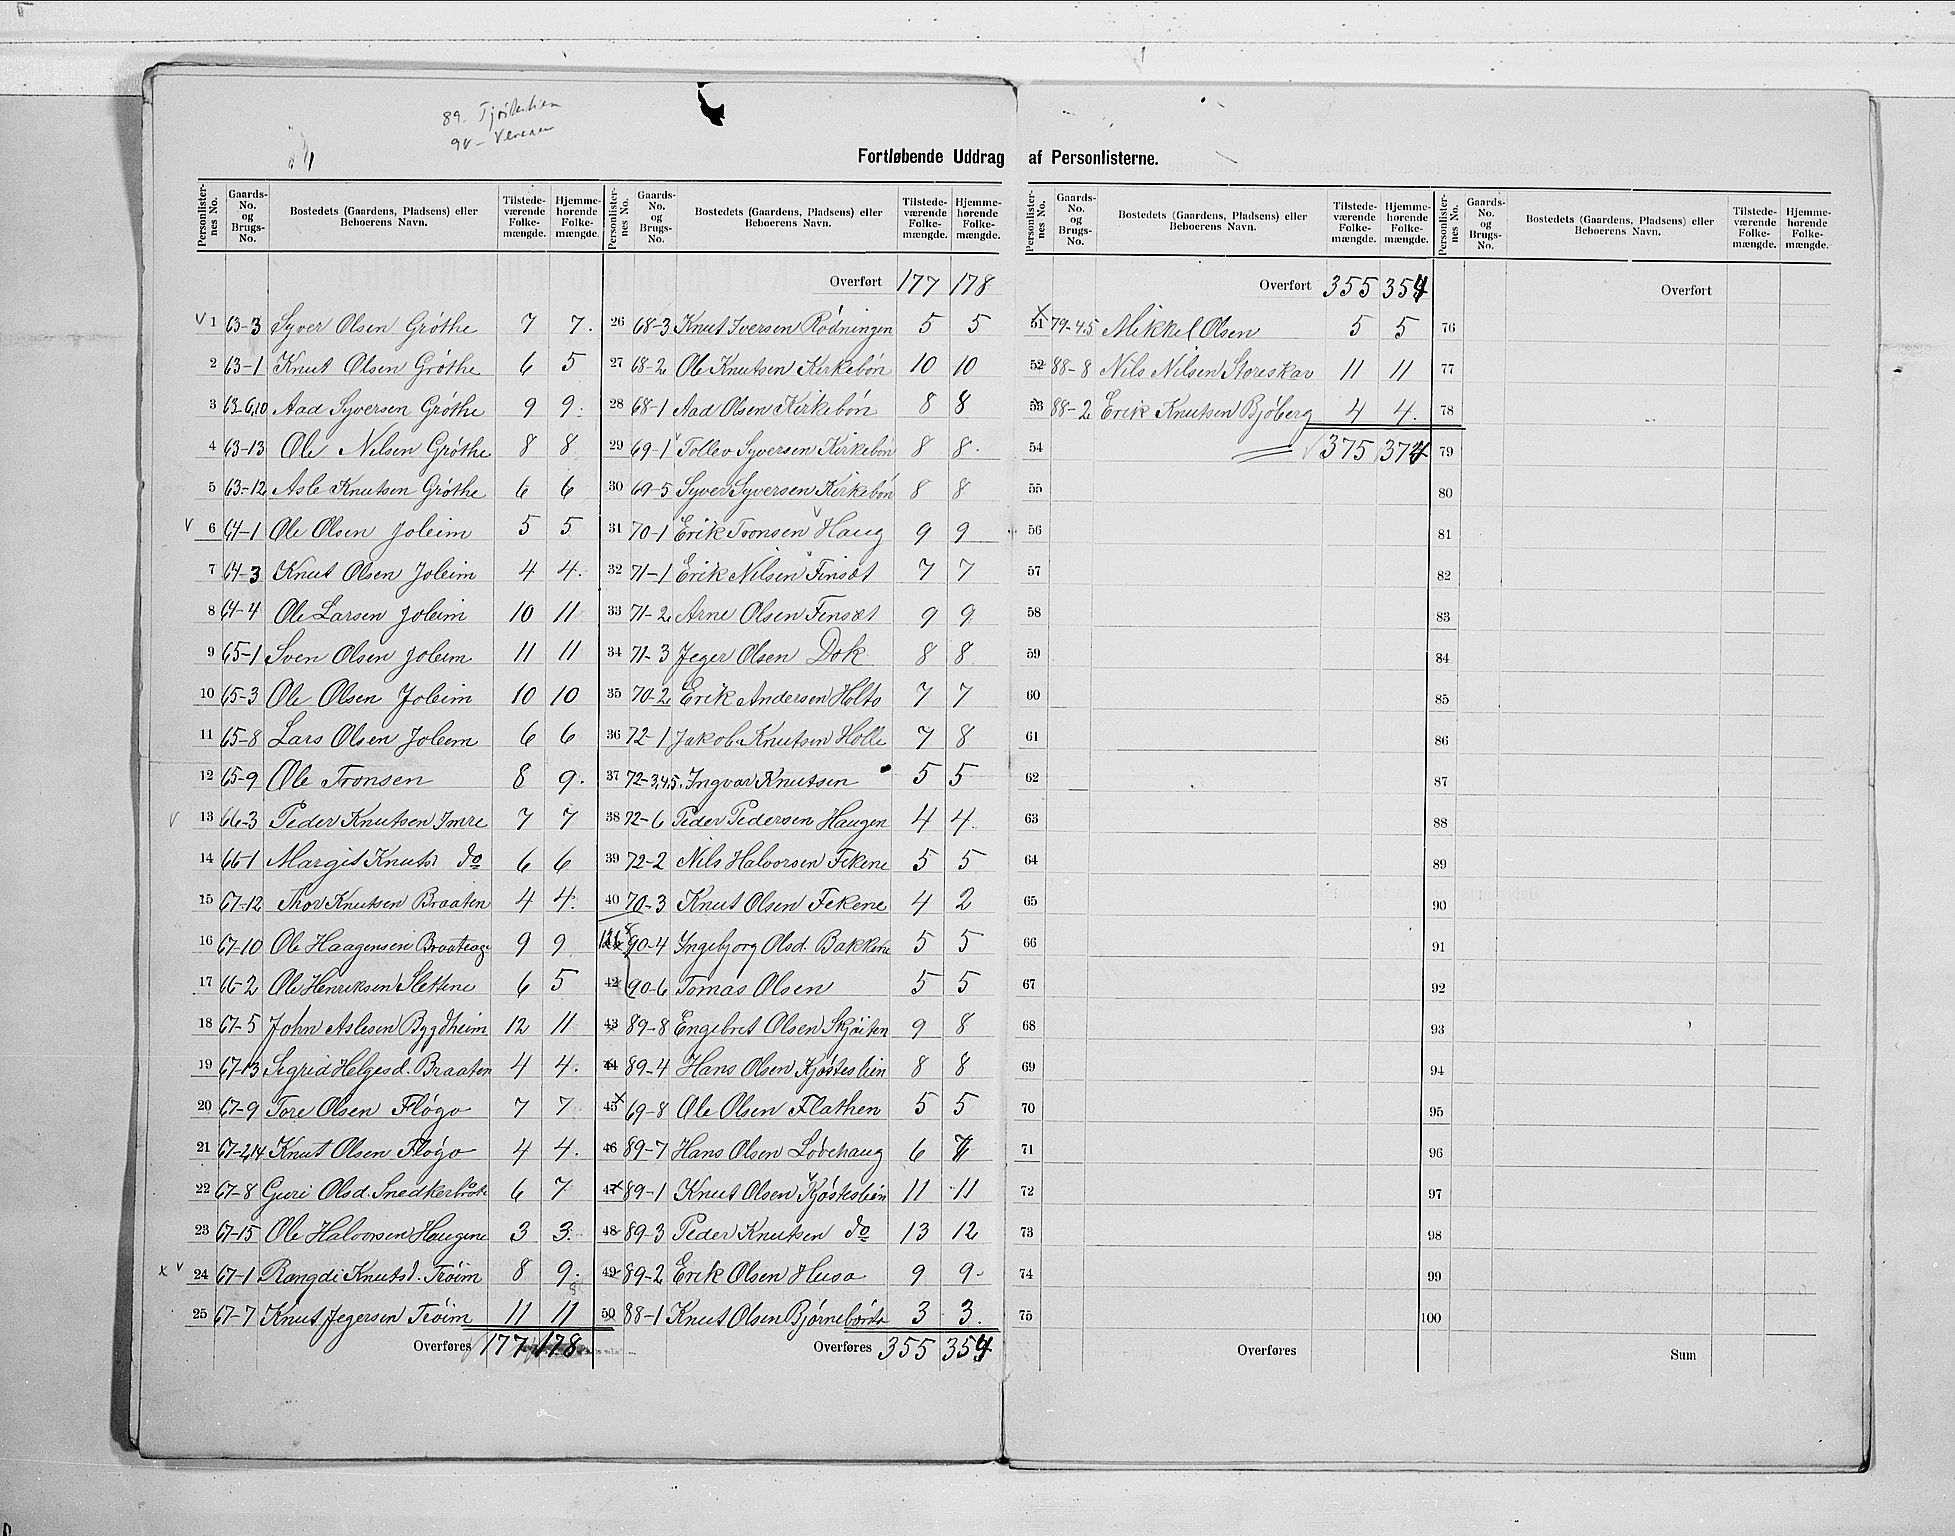 89- Tjøstelien
90-
Fortløbende Uddrag af Personlisterne.
Personlister-nes No. Gaards-No. og Brugs-No. Bostedets (Gaardens, Pladsens) eller Beboerens Navn. Tilstede-værende Folke-mængde. Hjemme-hørende Folke-mængde.
1 63-3 Syver Olsen Grøthe 7 7.
2 63-1 Knut Olsen Grøthe 6 5
3 63-6,10 Aad Syversen Grøthe 9 9.
4 63-13 Ole Nilsen Grøthe 8 8
5 63-12 Asle Knutsen Grøthe 6 6
6 64-1 Ole Olsen Joleim 5 5
7 64-3 Knut Olsen Joleim 4 4.
8 64-4 Ole Larsen Joleim 10 11
9 65-1 Sven Olsen Joleim 11 11
10 65-3 Ole Olsen Joleim 10 10
11 65-8 Lars Olsen Joleim 6 6
12 65-9 Ole Tronsen 8 9.
13 66-3 Peder Knutsen Imre 7 7
14 66-1 Margit Knutsd do 6 6
15 67-12 Thor Knutsen Braaten 4 4.
16 67-10 Ole Haagensen 9 9
17 66-2 Ole Henriksen Slettene 6 5
18 67-5 John Aslesen Bygdheim 12 11
19 67-13 Sigrid Helgesd. Braaten 4 4.
20 67-9 Tore Olsen Fløgo 7 7
21 67-2,14 Knut Olsen Fløgo 4 4.
22 67-8 Guri Olsd. 6 7
23 67-15 Ole Halvorsen Haugene 3 3.
24 67-1 Rangdi Knutsd. Trøim 8 9.
25 67-7 Knut Jegersen Trøim 11 11
Overføres 177 178
Personlister-nes No. Gaards-No. og Brugs-No. Bostedets (Gaardens, Pladsens) eller Beboerens Navn. Tilstede-værende Folke-mængde. Hjemme-hørende Folke-mængde.
Overført 177 178
26 68-3 Knut Iversen Rødningen 5 5
27 68-2 Ole Knutsen Kirkebøn 10 10
28 68-1 Aad Olsen Kirkebøn 8 8
29 69-1 Tollev Syversen Kirkebøn 8 8.
30 69-5 Syver Syversen Kirkebøn 8 8
31 70-1 Erik Tronsen Haug 9 9
32 71-1 Erik Nilsen Finset 7 7
33 71-2 Arne Olsen Finset 9 9
34 71-3 Jeger Olsen Dok 8 8
35 70-2 Erik Andersen Holto 7 7
36 72-1 Jakob Knutsen Holle 7 8
37 72-3,4,5. Ingvar Knutsen 5 5
38 72-6 Peder Pedersen Haugen 4 4.
39 72-2 Nils Halvorsen Fekene 5 5
40 70-3 Knut Olsen Fekene 4 2
90-4 Yngebjorg Olsd. Bakkene 5 5
42 90-6 Tomas Olsen 5 5
43 89-8 Engebret Olsen 9 8
44 89-4 Hans Olsen Kjøsteslien 8 8
45 69-8 Ole Olsen Flathen 5 5
46 89-7 Hans Olsen Løvehaug 6 7
47 89-1 Knut Olsen Kjøsteslien 11 11
48 89-3 Peder Knutsen do 13 12
49 89-2 Erik Olsen Huso 9 9-
50 88-1 Knut Olsen 3 3.
Overføres 355 354
Personlister-nes No. Gaards-No. og Brugs-No. Bostedets (Gaardens, Pladsens) eller Beboerens Navn. Tilstede-værende Folke-mængde. Hjemme-hørende Folke-mængde.
Overført 355 354
51 79-45 Mikkel Olsen 5 5
52 88-8 Nils Nilsen Storeskar 11 11
53 88-2 Erik Knutsen Bjøberg 4 4.
54 375 374
55
56
57
58
59
60
61
62
63
64
65
66
67
68
69
70
71
72
73
74
75
Overføres
Personlister-nes No. Gaards-No. og Brugs-No. Bostedets (Gaardens, Pladsens) eller Beboerens Navn. Tilstede-værende Folke-mængde. Hjemme-hørende Folke-mængde.
Overført
76
77
78
79
80
81
82
83
84
85
86
87
88
89
90
91
92
93
94
95
96
97
98
99
100
Sum